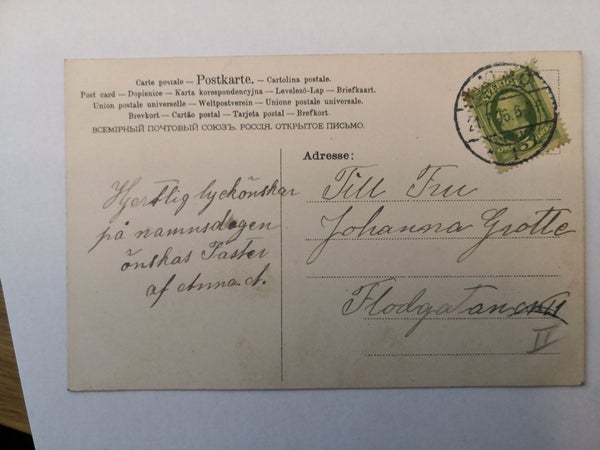 Carte postale — Postkarte. — Cartolina postale.
Post card — Dopisnice — Karta korospondencyjna — Levelező-Lap — Briefkaart.
Union postale universelle — Weltpostverein — Unione postale universale.
Brevkort — Cartão postal — Tarjeta postal — Brefkort.
ВСЕМІРНЫЙ ПОЧТОВЫЙ СОЮЗЪ. РОССІЯ. ОТКРЫТОЕ ПИСЬМО.
Adresse:
Hjertlig lyckönskar
på namnsdagen
önskas Faster
af Anna A.
Till Fru
Johanna Grotte
Flodgatan
II